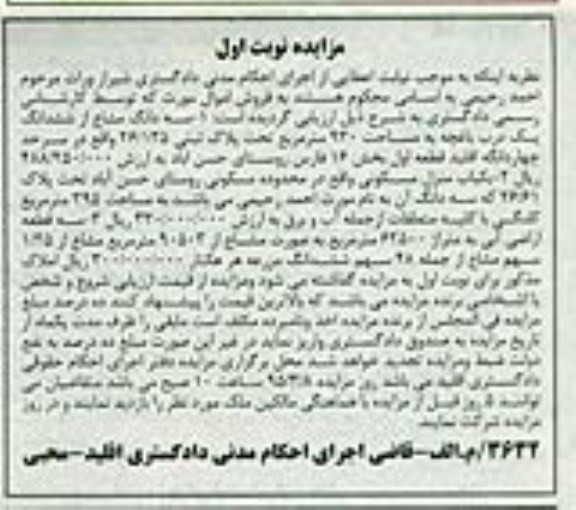 مزایده نوبت اول
نظریه اینکه به موجب نیابت اعطایی از اجرای احکام مدنی دادگستری شیراز وراث مرحوم
احمد رحیمی به اسامی محکوم هستند به فروش اموال مورث که توسط کارشناسی
رسمی دادگستری به شرح ذیل ارزیابی گردیده است: ۱-سه دانگ مشاع از ششدانگ
یک درب باغچه به مساحت ۹۳۰ مترمربع تحت پلاک ثبتی ۲۶/۱۲۵ واقع در سرحد
چهاردانگه اقلید قطعه اول بخش ۱۶ فارس روستای حسن آباد به ارزش ۲۸۸/۲۵۰/۰۰۰
ریال ۲-یکباب منزل مسکونی واقع در محدوده مسکونی روستای حسن آباد تحت پلاک
۲۶/۶۱ که سه دانگ آن به نام مورث احمد رحیمی می باشند به مساحت ۲۹۵ مترمربع
کلنگی با کلیه متعلقات ازجمله آب و برق به ارزش ۳۳۰/۰۰۰/۰۰۰ ریال ۳-سه قطعه
اراضی آبی به متراژ ۶۲۵۰۰ مترمربع به صورت مشاع از ۹۰۵۰۳ مترمربع مشاع از ۱/۲۵
سهم مشاع از جمله ۲۸ سهم ششدانگ مزرعه هر هکتار ۳۰۰/۰۰۰/۰۰۰ ریال املاک
مذکور برای نوبت اول به مزایده گذاشته می شود ومزایده از قیمت ارزیابی شروع و شخص
یا اشخاصی برنده مزایده می باشند که بالاترین قیمت را پیشنهاد کنند ده درصد مبلغ
مزایده فی المجلس از برنده مزایده اخذ ونامبرده مکلف است مابقی را ظرف مدت یکماه از
تاریخ مزایده به صندوق دادگستری واریز نماید در غیر این صورت مبلغ ده درصد به نفع
دولت ضبط ومزایده تجدید خواهد شد محل برگزاری مزایده دفتر اجرای احکام حقوقی
دادگستری اقلید می باشد روز مزایده ۹۵/۳/۸ ساعت ۱۰ صبح می باشد متقاضیان می
توانند ۵ روز قبل از مزایده با هماهنگی مالکین ملک مورد نظر را بازدید نمایند و در روز
مزایده شرکت نمایند.
۳۶۳۲/م.الف-قاضی اجرای احکام مدنی دادگستری اقلید-محبی